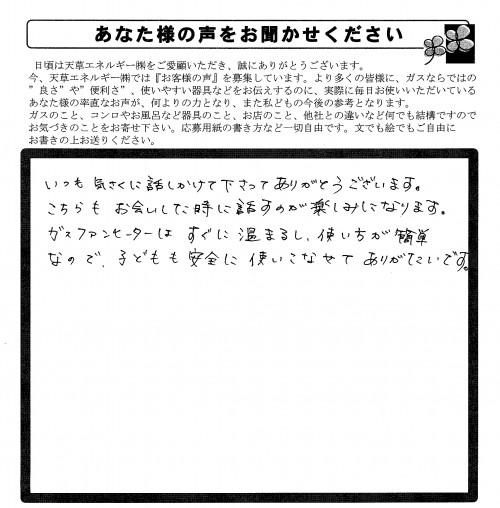 あなた様の声をお聞かせください
日頃は天草エネルギー㈱をご愛顧いただき、誠にありがとうございます。
今、天草エネルギー㈱では『お客様の声』を募集しています。より多くの皆様に、ガスならではの
”良さ”や”便利さ”、使いやすい器具などをお伝えするのに、実際に毎日お使いいただいている
あなた様の率直なお声が、何よりの力となり、また私どもの今後の参考となります。
ガスのこと、コンロやお風呂など器具のこと、お店のこと、他社との違いなど何でも結構ですので
お気づきのことをお寄せ下さい。応募用紙の書き方など一切自由です。文でも絵でもご自由に
お書きの上お送りください。
いつも気さくに話しかけて下さってありがとうございます。
こちらもお会いした時に話すのが楽しみになります。
ガスファンヒーターはすぐに温まるし、使い方が簡単
なので、子どもも安全に使いこなせてありがたいです。